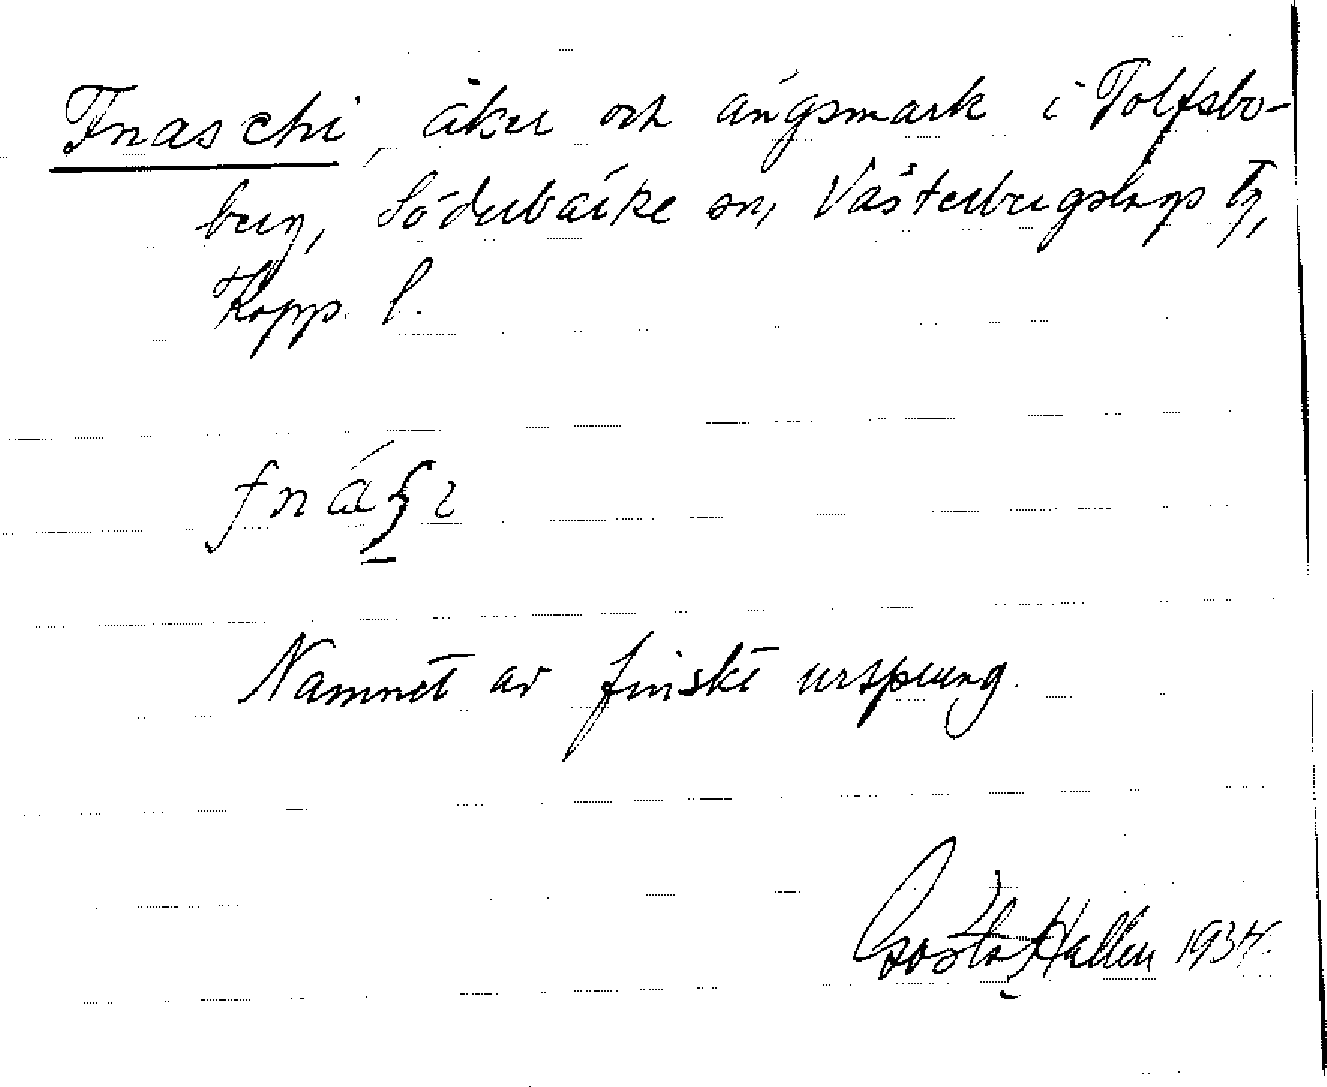 Fnaschi, åker och ängsmark i Tolfsbo-
berg, Söderbärke sn, Västerbergslags tg,
Kopp. l.
Namnet av finskt ursprung.
Gösta Hallen 1934.